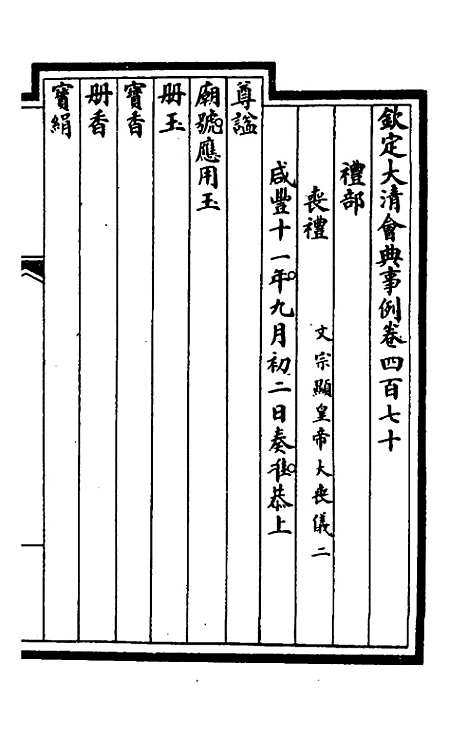 欽定大清會典事例卷四百七十
禮部
喪禮 文宗顯皇帝大喪儀二
咸豐十一年。九月初二日奏准。恭上
尊諡
廟號應用玉
冊玉
寶香
冊香
寶絹